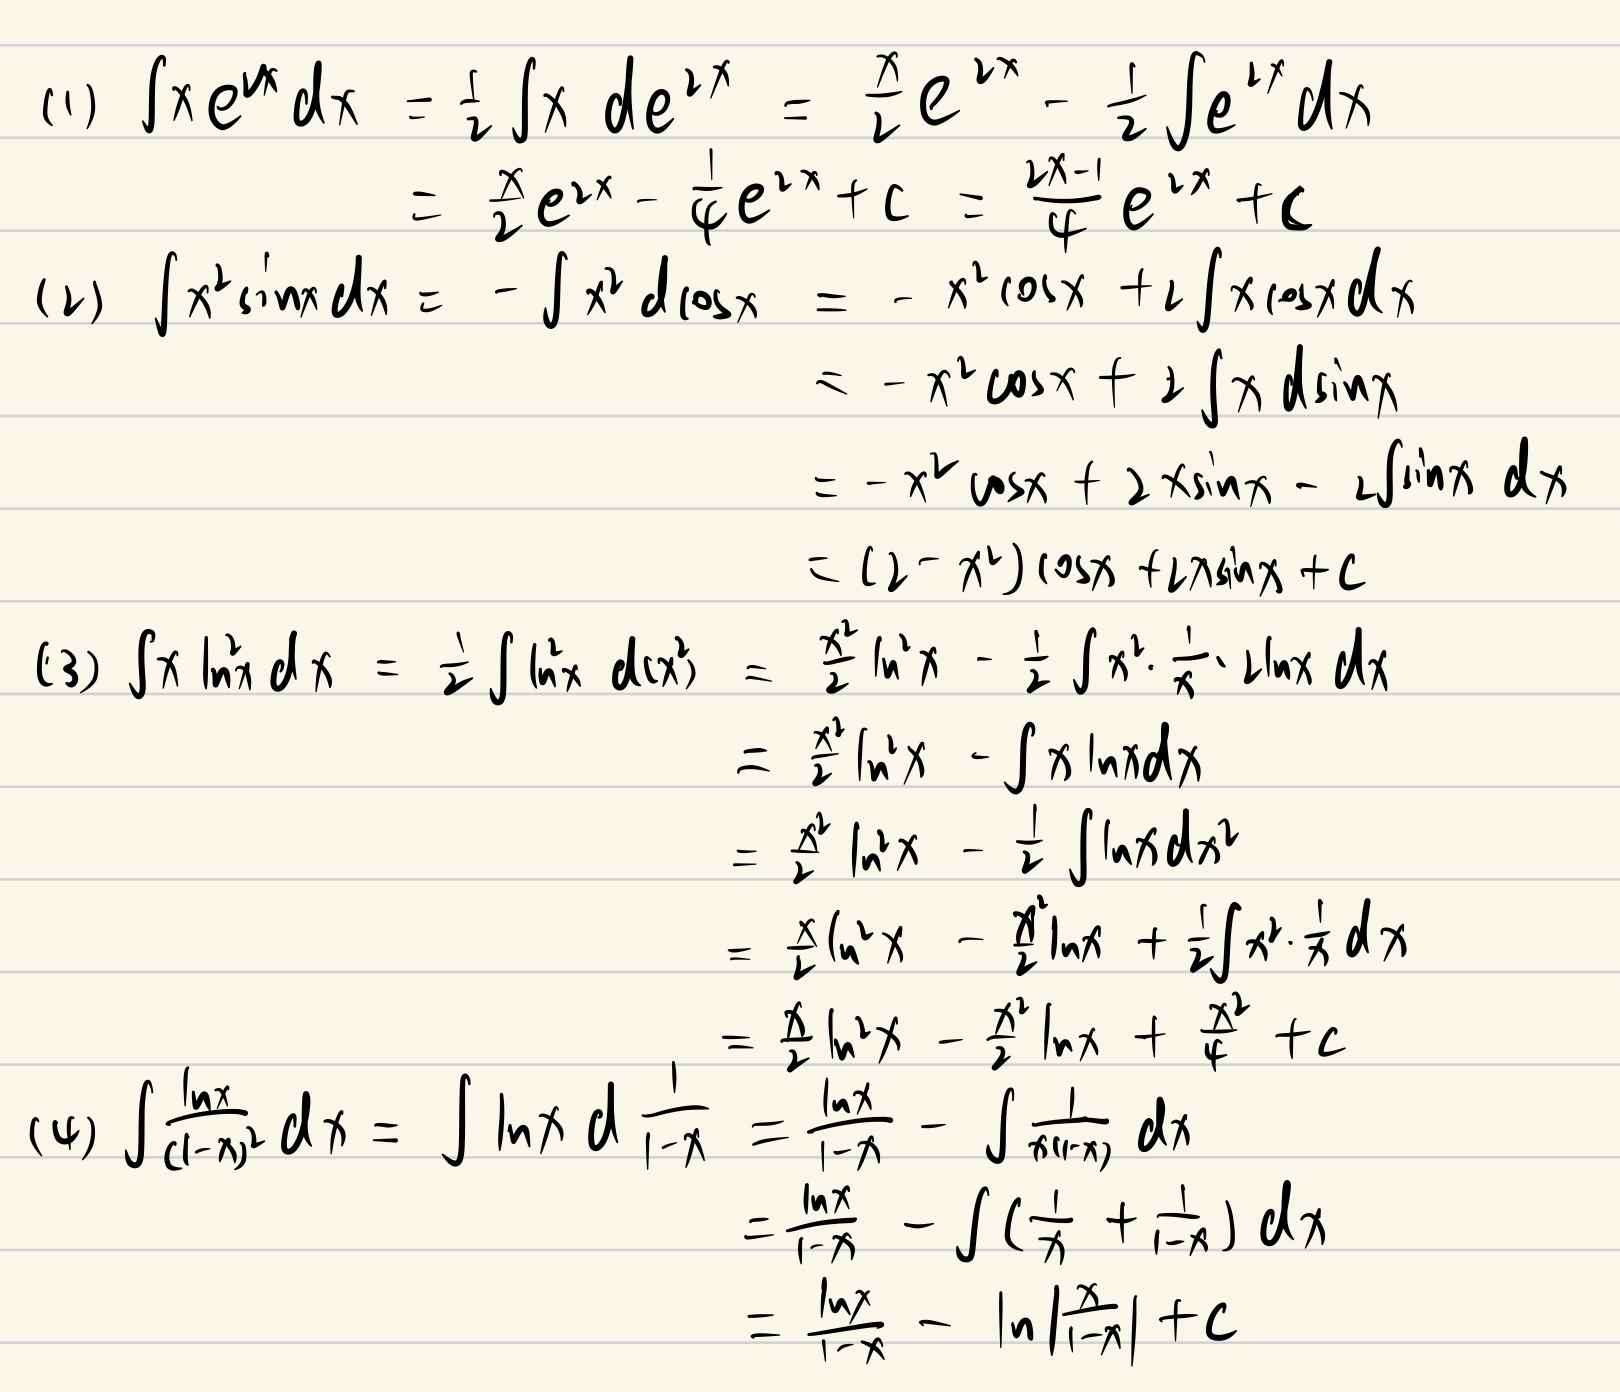 (1) ∫xe^{2x}dx = \frac{1}{2}∫x de^{2x} = \frac{x}{2}e^{2x} - \frac{1}{2}∫e^{2x}dx
= \frac{x}{2}e^{2x} - \frac{1}{4}e^{2x} + c = \frac{2x-1}{4}e^{2x} + c
(2) ∫x²sinx dx = -∫x² dcosx = -x²cosx + 2∫xcosxdx
= -x²cosx + 2∫x dsinx
= -x²cosx + 2xsinx - 2∫sinx dx
= (2-x²)cosx + 2xsinx + c
(3) ∫x ln²x dx = \frac{1}{2}∫ln²x d(x²) = \frac{x²}{2}ln²x - \frac{1}{2}∫x²·\frac{1}{x}·2lnx dx
= \frac{x²}{2}ln²x - ∫x lnxdx
= \frac{x²}{2}ln²x - \frac{1}{2}∫lnxdx²
= \frac{x}{2}ln²x - \frac{x²}{2}lnx + \frac{1}{2}∫x²·\frac{1}{x}dx
= \frac{x}{2}ln²x - \frac{x²}{2}lnx + \frac{x²}{4} + c
(4) ∫\frac{lnx}{(1-x)²}dx = ∫lnx d\frac{1}{1-x} = \frac{lnx}{1-x} - ∫\frac{1}{x(1-x)}dx
= \frac{lnx}{1-x} - ∫(\frac{1}{x} + \frac{1}{1-x})dx
= \frac{lnx}{1-x} - ln|\frac{x}{1-x}| + c